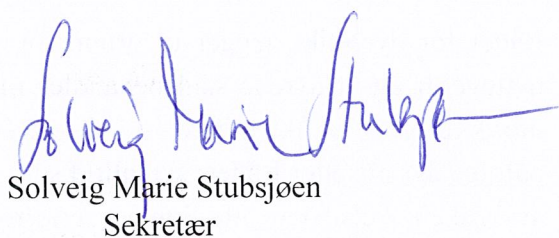 Solveig Marie Stubsjøen
Solveig Marie Stubsjøen
Sekretær